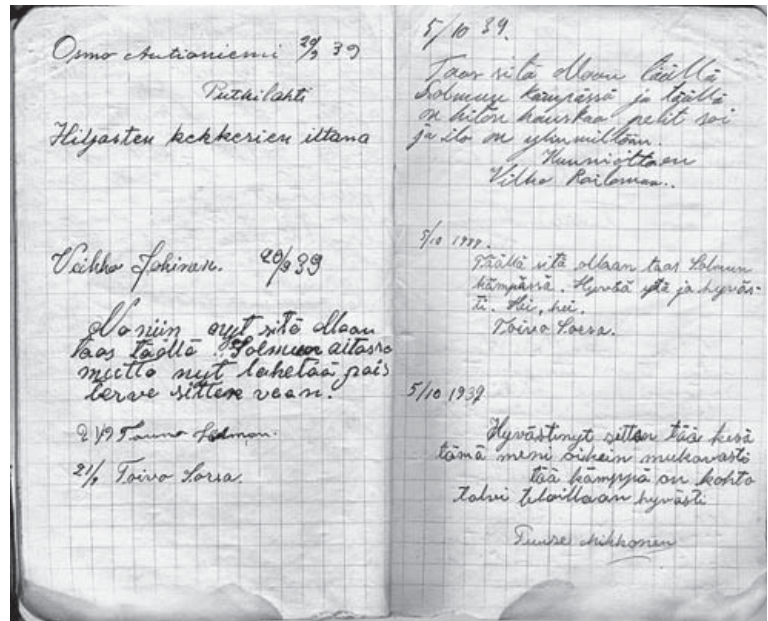 Osmo Autioniemi 20/9 39
Putkilahti
Hiljasten kekkerien iltana
Veikko Jokinen. 20/9 39
No niin nyt sitä ollaan
taas täällä. Solmun aitassa
mutta nyt lähetää pois
terve sitten vaan.
21/9 Tauno Salmon.
21/9 Toivo Sorsa.
5/10 39.
Taas sitä ollaan täällä
Solmun kämpässä ja täällä
on hiton hauskaa pelit soi
ja ilo on ylimmillään.
Kunnioittaen
Vilho
5/10 1939.
Täällä sitä ollaan taas Solmun
kämpässä. Hyvää yötä ja hyväs-
ti. Hei, hei.
Toivo Sorsa.
5/10 1939
Hyvästi nyt sitten tää kesä
tämä meni oikein mukavasti
tää kämppä on kohta
talvi teloillaan hyvästi
Tuure Mikkonen